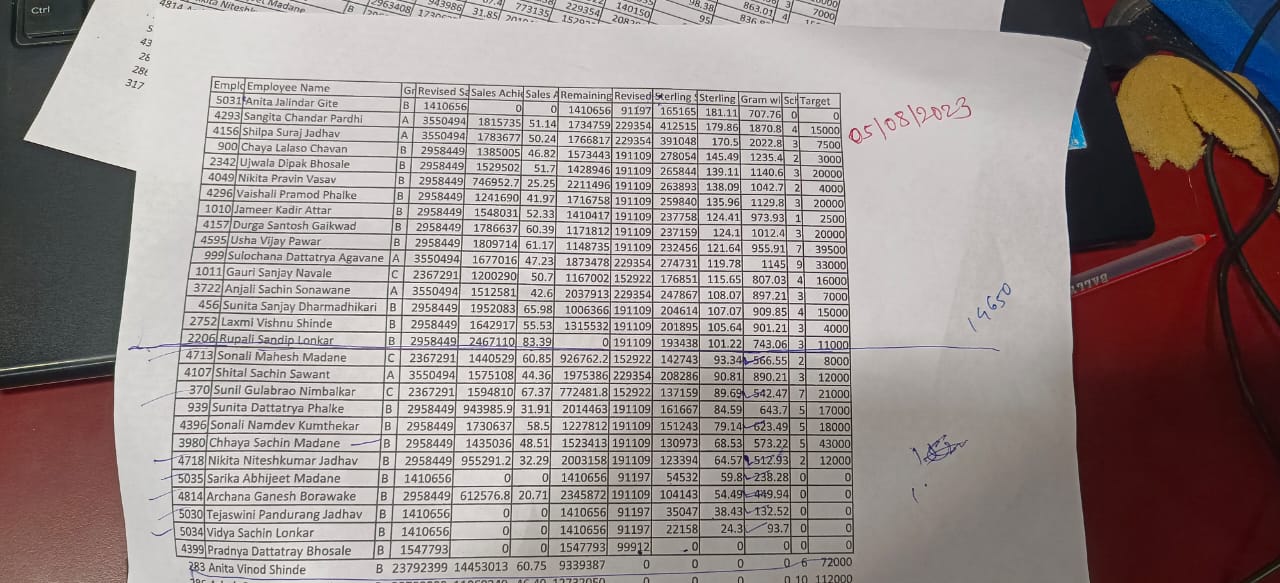 Ctrl
4814
Nikita Nitesh
Jeet Madane
B
2963408
943986
31.85
773135
229354
140150
98.38
863.01
4
7000
95
836
43
28
286
317
Employee Name Gr Revised Sa Sales Achi Sales A Remaining Revised Sterling Sterling Gram wi Sch Target
5031 Anita Jalindar Gite B 1410656 0 0 1410656 91197 165165 181.11 707.76 0 0
4293 Sangita Chandar Pardhi A 3550494 1815735 51.14 1734759 229354 412515 179.86 1870.8 4 15000
4156 Shilpa Suraj Jadhav A 3550494 1783677 50.24 1766817 229354 391048 170.5 2022.8 3 7500
900 Chaya Lalaso Chavan B 2958449 1385005 46.82 1573443 191109 278054 145.49 1235.4 2 3000
2342 Ujwala Dipak Bhosale B 2958449 1529502 51.7 1428946 191109 265844 139.11 1140.6 3 20000
4049 Nikita Pravin Vasav B 2958449 746952.7 25.25 2211496 191109 263893 138.09 1042.7 2 4000
4296 Vaishali Pramod Phalke B 2958449 1241690 41.97 1716758 191109 259840 135.96 1129.8 3 20000
1010 Jameer Kadir Attar B 2958449 1548031 52.33 1410417 191109 237758 124.41 973.93 1 2500
4157 Durga Santosh Gaikwad B 2958449 1786637 60.39 1171812 191109 237159 124.1 1012.4 3 20000
4595 Usha Vijay Pawar B 2958449 1809714 61.17 1148735 191109 232456 121.64 955.91 7 39500
999 Sulochana Dattatrya Agavane A 3550494 1677016 47.23 1873478 229354 274731 119.78 1145 9 33000
1011 Gauri Sanjay Navale C 2367291 1200290 50.7 1167002 152922 176851 115.65 807.03 4 16000
3722 Anjali Sachin Sonawane A 3550494 1512581 42.6 2037913 229354 247867 108.07 897.21 3 7000
456 Sunita Sanjay Dharmadhikari B 2958449 1952083 65.98 1006366 191109 204614 107.07 909.85 4 15000
2752 Laxmi Vishnu Shinde B 2958449 1642917 55.53 1315532 191109 201895 105.64 901.21 3 4000
2206 Rupali Sandip Lonkar B 2958449 2467110 83.39 0 191109 193438 101.22 743.06 3 11000
4713 Sonali Mahesh Madane C 2367291 1440529 60.85 926762.2 152922 142743 93.34 566.55 2 8000
4107 Shital Sachin Sawant A 3550494 1575108 44.36 1975386 229354 208286 90.81 890.21 3 12000
370 Sunil Gulabrao Nimbalkar C 2367291 1594810 67.37 772481.8 152922 137159 89.69 542.47 7 21000
939 Sunita Dattatrya Phalke B 2958449 943985.9 31.91 2014463 191109 161667 84.59 643.7 5 17000
4396 Sonali Namdev Kumthekar B 2958449 1730637 58.5 1227812 191109 151243 79.14 623.49 5 18000
3980 Chhaya Sachin Madane B 2958449 1435036 48.51 1523413 191109 130973 68.53 573.22 5 43000
4718 Nikita Niteshkumar Jadhav B 2958449 955291.2 32.29 2003158 191109 123394 64.57 512.93 2 12000
5035 Sarika Abhijeet Madane B 1410656 0 0 1410656 91197 54532 59.8 238.28 0 0
4814 Archana Ganesh Borawake B 2958449 612576.8 20.71 2345872 191109 104143 54.49 449.94 0 0
5030 Tejaswini Pandurang Jadhav B 1410656 0 0 1410656 91197 35047 38.43 132.52 0 0
5034 Vidya Sachin Lonkar B 1410656 0 0 1410656 91197 22158 24.3 93.7 0 0
4399 Pradnya Dattatray Bhosale B 1547793 0 0 1547793 99912 0 0 0 0 0
283 Anita Vinod Shinde B 23792399 14453013 60.75 9339387 0 0 0 6 72000
10 112000
05/08/2023
14650